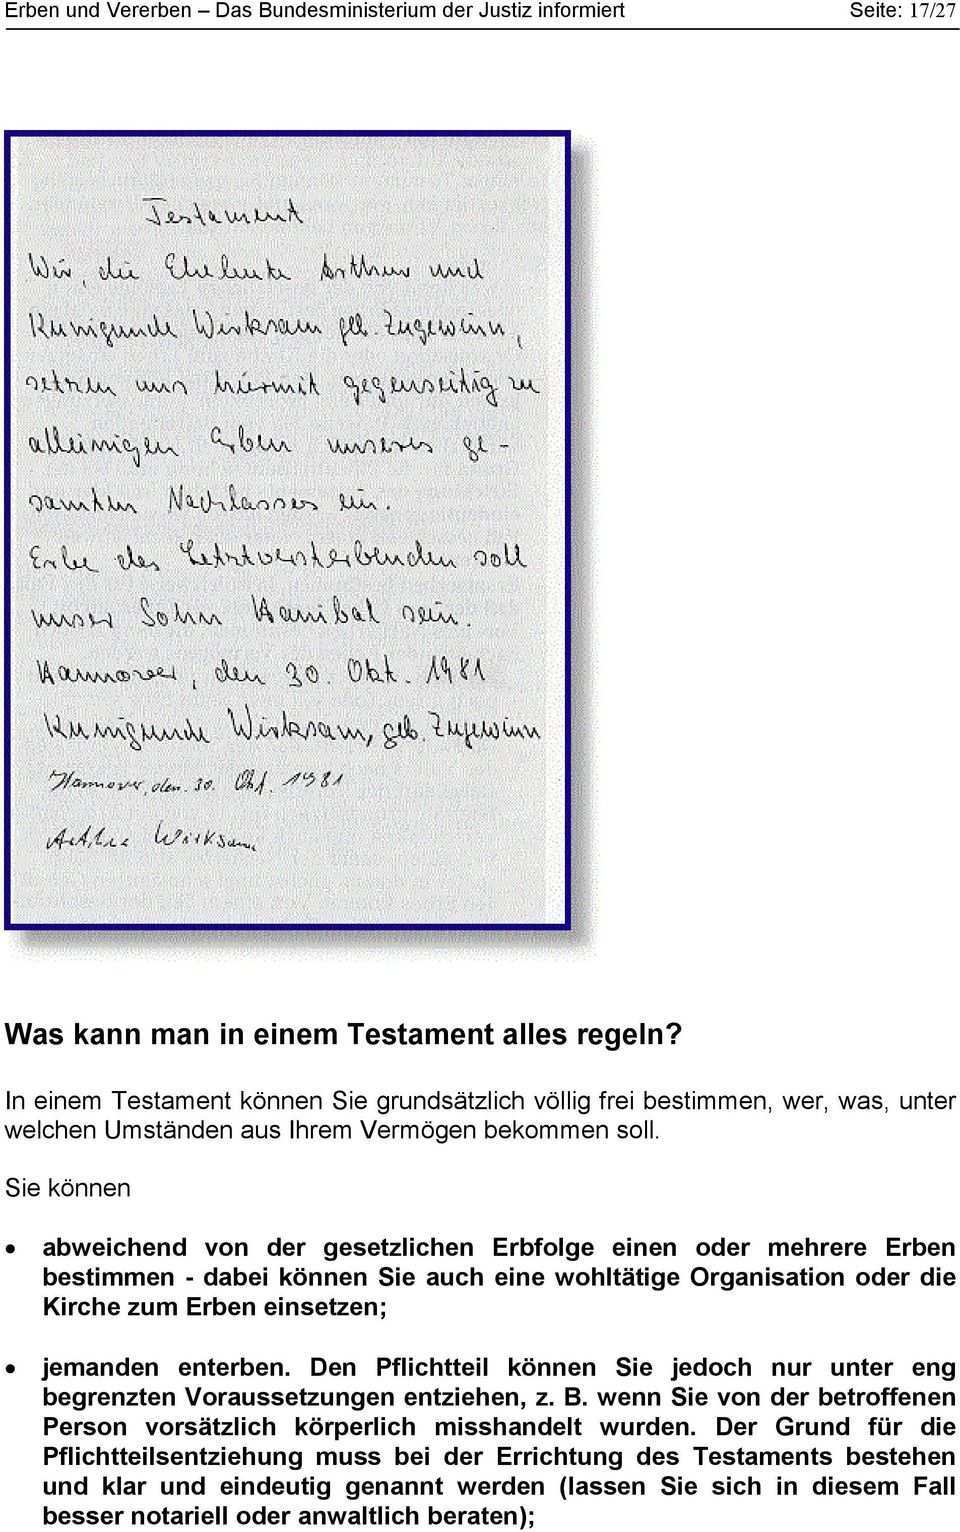 Erben und Vererben – Das Bundesministerium der Justiz informiert Seite: 17/27
Testament
Wir, die Eheleute Arthur und
Kunigunde Wirksam geb. Zugewinn,
setzen uns hiermit gegenseitig zu
alleinigen Erben unseres ge-
samten Nachlasses ein.
Erbe des Letztversterbenden soll
unser Sohn Hanibal sein.
Hannover, den 30. Okt. 1981
Kunigunde Wirksam, geb. Zugewinn
Hannover, den 30. Okt. 1981
Arthur Wirksam
Was kann man in einem Testament alles regeln?
In einem Testament können Sie grundsätzlich völlig frei bestimmen, wer, was, unter
welchen Umständen aus Ihrem Vermögen bekommen soll.
Sie können
• abweichend von der gesetzlichen Erbfolge einen oder mehrere Erben
bestimmen - dabei können Sie auch eine wohltätige Organisation oder die
Kirche zum Erben einsetzen;
• jemanden enterben. Den Pflichtteil können Sie jedoch nur unter eng
begrenzten Voraussetzungen entziehen, z. B. wenn Sie von der betroffenen
Person vorsätzlich körperlich misshandelt wurden. Der Grund für die
Pflichtteilsentziehung muss bei der Errichtung des Testaments bestehen
und klar und eindeutig genannt werden (lassen Sie sich in diesem Fall
besser notariell oder anwaltlich beraten);